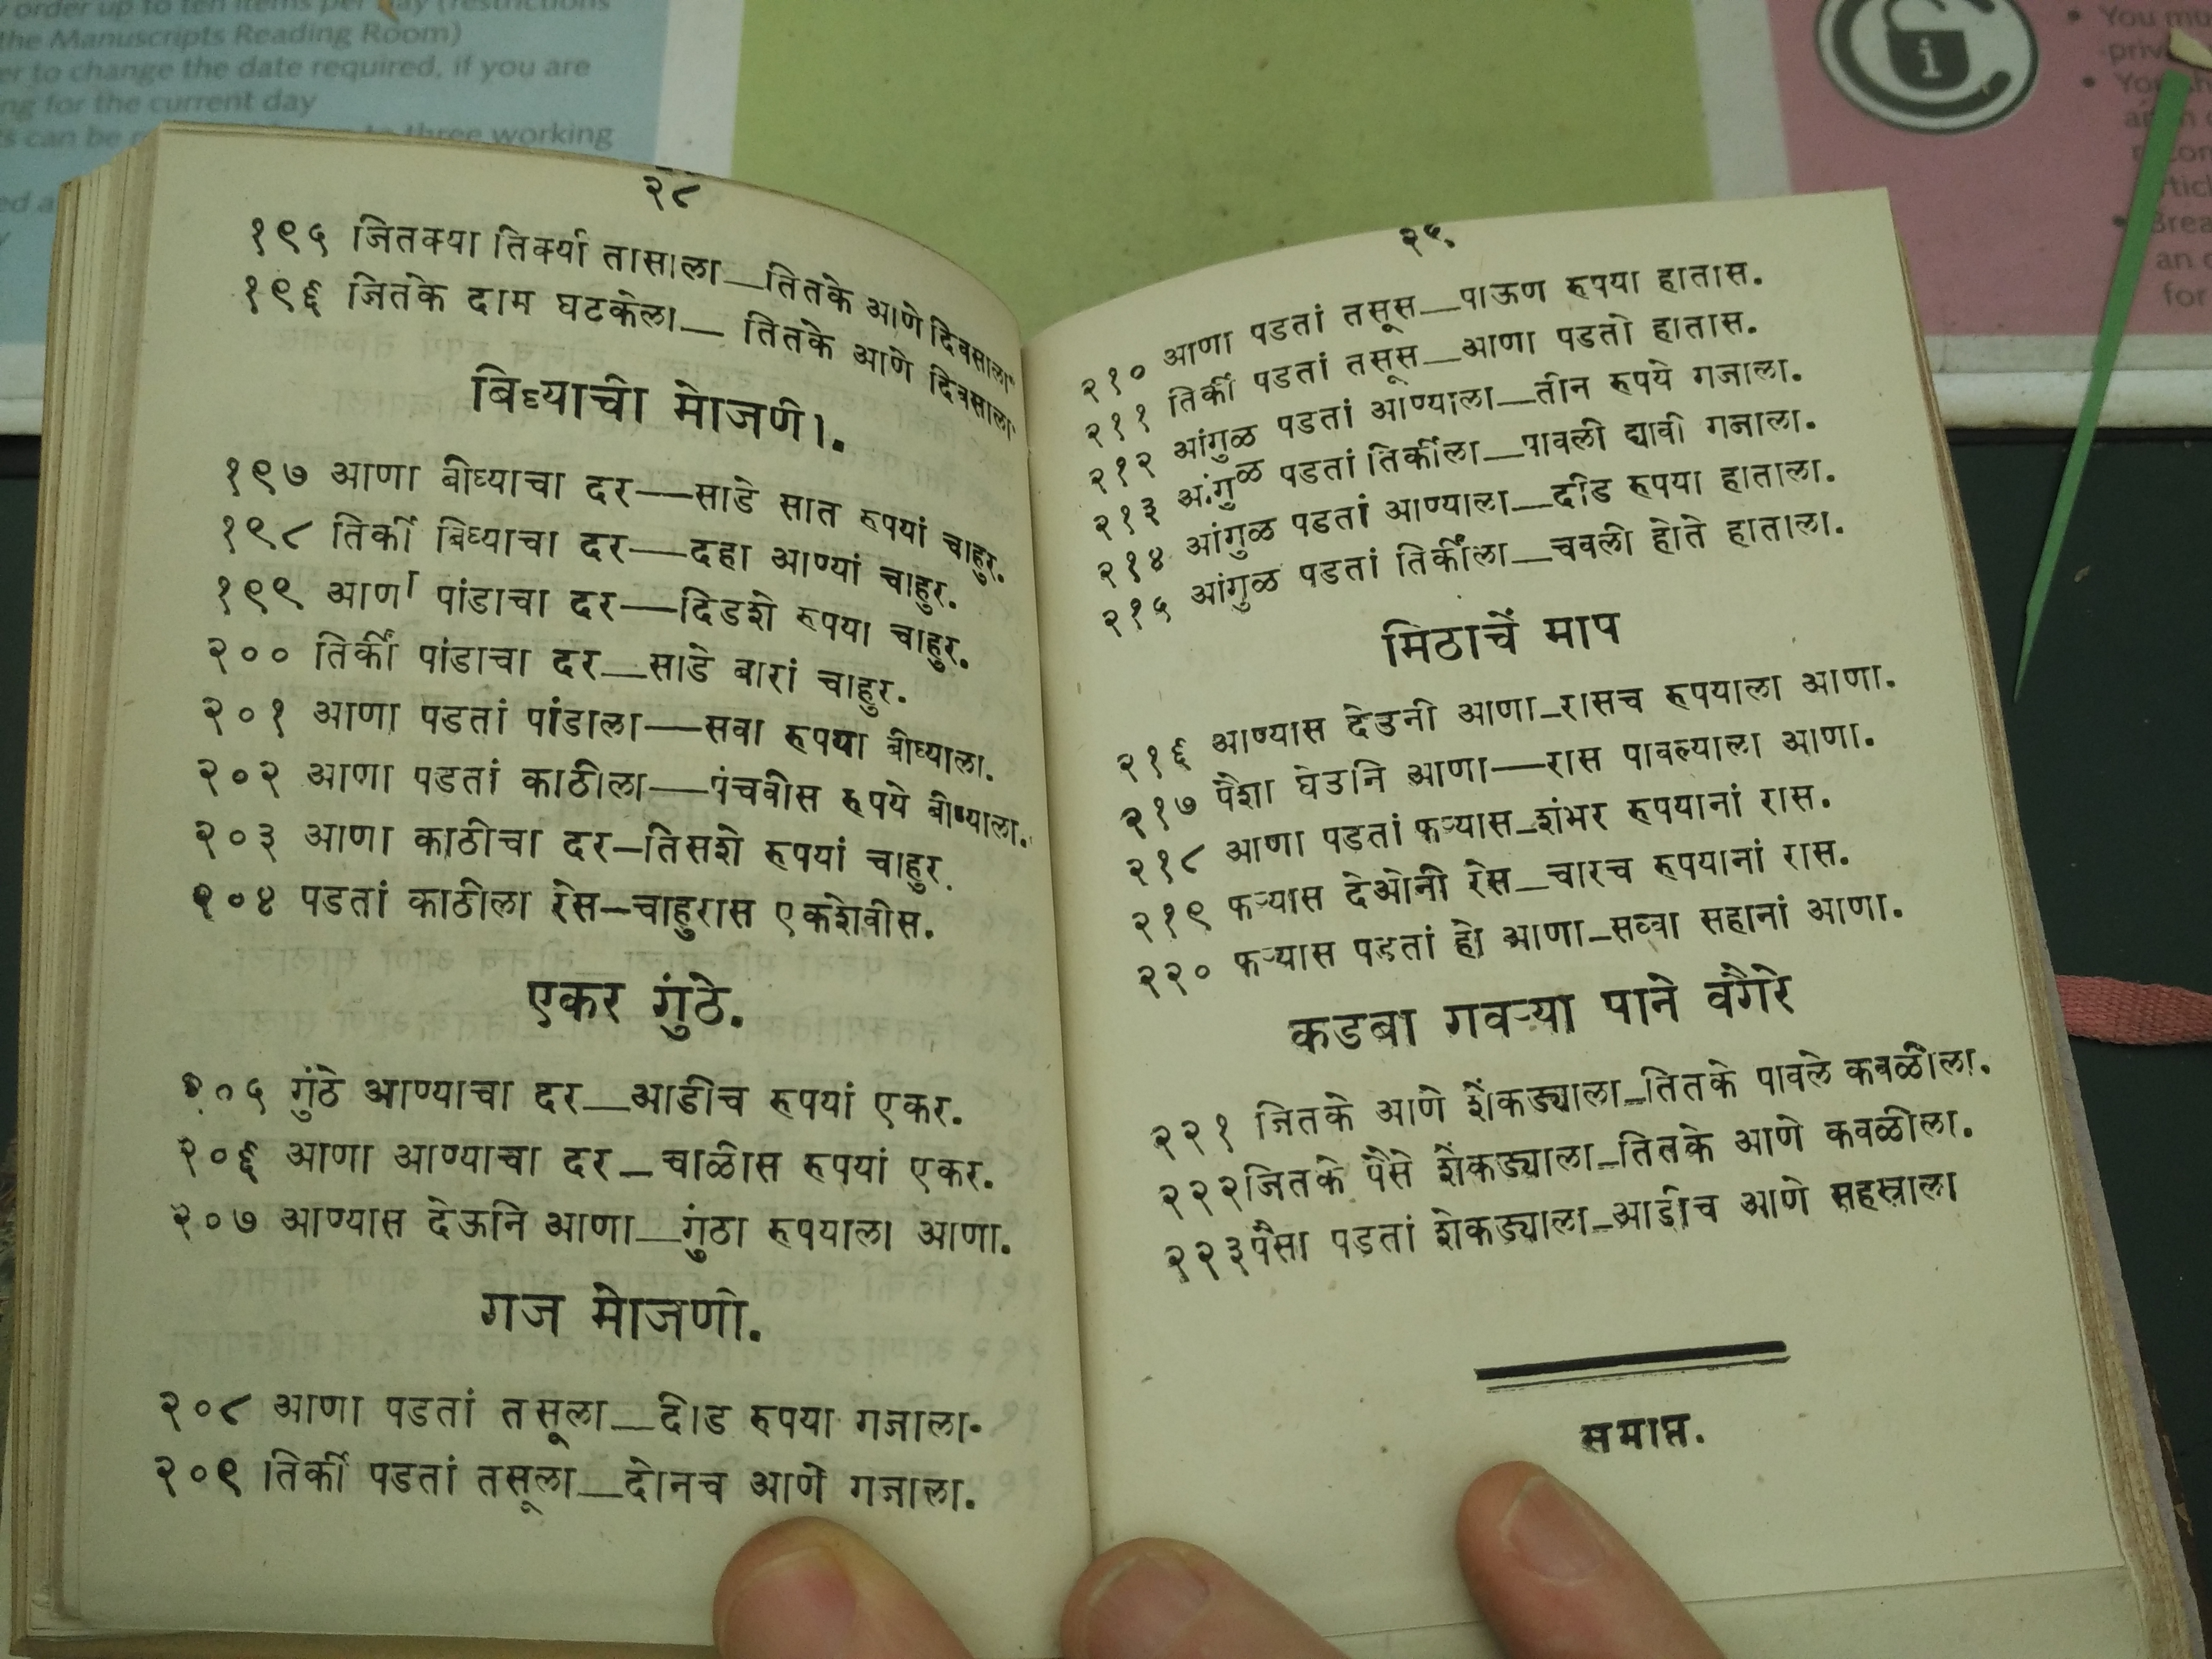 order up to ten items per day (restrictions
the Manuscripts Reading Room)
er to change the date required, if you are
ng for the current day
s can be three working
ed a
You mu
priv
Yo
Brea
an
for
i
२८
१९५ जितक्या तिर्क्या तासाला—तितके आणे दिवसाला
१९६ जितके दाम घटकेला— तितके आणे दिवसाला
बिघ्याची मोजणी.
१९७ आणा बीघ्याचा दर—साडे सात रुपयां चाहुर.
१९८ तिर्की बिघ्याचा दर—दहा आण्यां चाहुर.
१९९ आणा पांडाचा दर—दिडशे रुपया चाहुर.
२०० तिर्कीं पांडाचा दर—साडे बारां चाहुर.
२०१ आणा पडतां पांडाला—सवा रुपया बीघ्याला.
२०२ आणा पडतां काठीला—पंचवीस रुपये बीघ्याला.
२०३ आणा काठीचा दर—तिसशे रुपयां चाहुर.
२०४ पडतां काठीला रेस—चाहुरास एकशेवीस.
एकर गुंठे.
२०५ गुंठे आण्याचा दर—आडीच रुपयां एकर.
२०६ आणा आण्याचा दर—चाळीस रुपयां एकर.
२०७ आण्यास देऊनि आणा—गुंठा रुपयाला आणा.
गज मोजणी.
२०८ आणा पडतां तसूला—दीड रुपया गजाला.
२०९ तिर्की पडतां तसूला—दोनच आणे गजाला.
२९
२१० आणा पडतां तसूस—पाऊण रुपया हातास.
२११ तिर्की पडतां तसूस—आणा पडतो हातास.
२१२ आंगुळ पडतां आण्याला—तीन रुपये गजाला.
२१३ आंगुळ पडतां तिर्कीला—पावली द्यावी गजाला.
२१४ आंगुळ पडतां आण्याला—दीड रुपया हाताला.
२१५ आंगुळ पडतां तिर्कीला—चवली होते हाताला.
मिठाचें माप
२१६ आण्यास देउनी आणा—रासच रुपयाला आणा.
२१७ पैशा घेउनि आणा—रास पावल्याला आणा.
२१८ आणा पडतां फऱ्यास—शंभर रुपयानां रास.
२१९ फऱ्यास देओनी रेस—चारच रुपयानां रास.
२२० फऱ्यास पडतां हो आणा—सव्वा सहानां आणा.
कडबा गवऱ्या पाने वगैरे
२२१ जितके आणे शेंकड्याला—तितके पावले कवळीला.
२२२ जितके पैसे शेंकड्याला—तितके आणे कवळीला.
२२३ पैसा पडतां शेकड्याला—आडीच आणे सहस्राला
समाप्त.